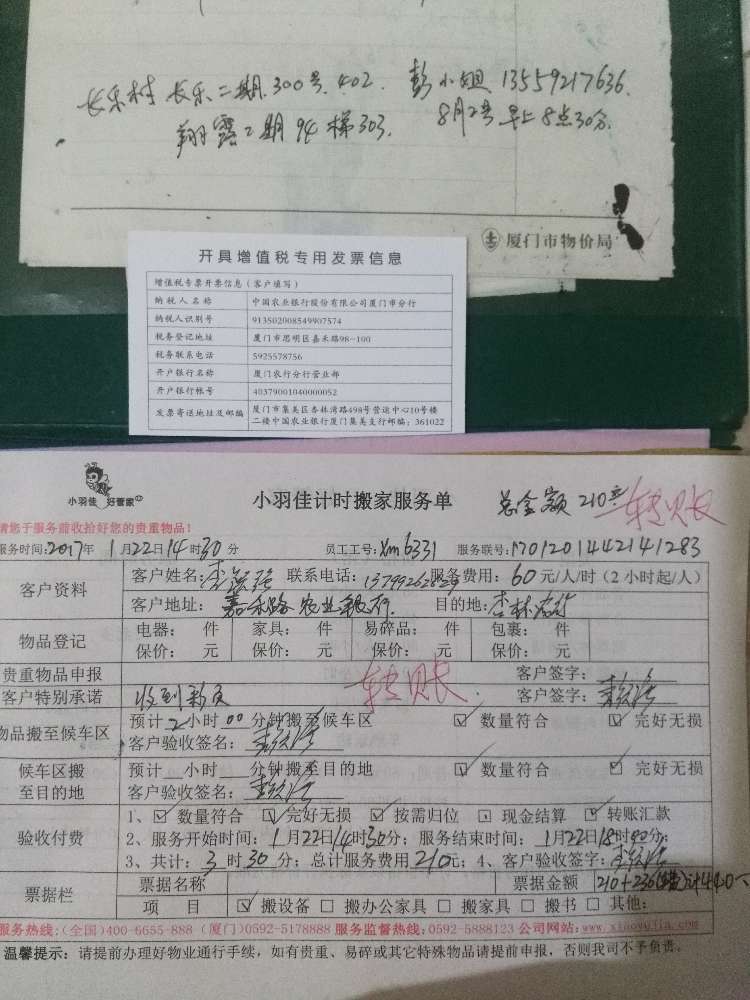 长乐村 长乐二期 300号. 402. 彭小姐 13559217636.
翔鹭二期 94梯303. 8月2号早上8点30分.
厦门市物价局
开具增值税专用发票信息
增值税专票开票信息(客户填写)
纳税人名称 中国农业银行股份有限公司厦门市分行
纳税人识别号 913502008549907574
税务登记地址 厦门市思明区嘉禾路98-100
税务联系电话 5925578756
开户银行名称 厦门农行分行营业部
开户银行帐号 40379001040000052
发票寄送地址及邮编 厦门市集美区杏林湾路498号营运中心10号楼
二楼中国农业银行厦门集美支行邮编:361022
小羽佳 好管家
小羽佳计时搬家服务单 总金额 210 转账
请您于服务前收拾好您的贵重物品!
服务时间:2017年 1月22日14时30分 员工工号:xm6331 服务联号:1701201442141283
客户资料 客户姓名: 联系电话: 服务费用: 60元/人/时(2小时起/人)
客户地址: 嘉禾路农业银行. 目的地:杏林
物品登记 电器: 件 家具: 件 易碎品: 件 包裹: 件
保价: 元 保价: 元 保价: 元 保价: 元
贵重物品申报 转账 客户签字:
客户特别承诺 收到 客户签字:
物品搬至候车区 预计2小时00分钟搬至候车区 ☑ 数量符合 ☑ 完好无损
客户验收签名:
候车区搬至目的地 预计 小时 分钟搬至目的地 ☑ 数量符合 ☑ 完好无损
客户验收签名:
验收付费 1、☑ 数量符合 ☑ 完好无损 ☑ 按需归位 □ 现金结算 ☑ 转账汇款
2、服务开始时间: 1月22日14时30分; 服务结束时间: 1月22日18时00分;
3、共计: 3时30分; 总计服务费用210元; 4、客户验收签字:
票据栏 票据名称 票据金额 210+236
项 目 ☑ 搬设备 □ 搬办公家具 □ 搬家具 □ 搬书 □ 其他:
服务热线:(全国)400-6655-888 (厦门)0592-5178888 服务监督热线:0592-5888123 公司网站:www.xiaoyujia.com
温馨提示: 请提前办理好物业通行手续,如有贵重、易碎或其它特殊物品请提前申报,否则我司不予负责。